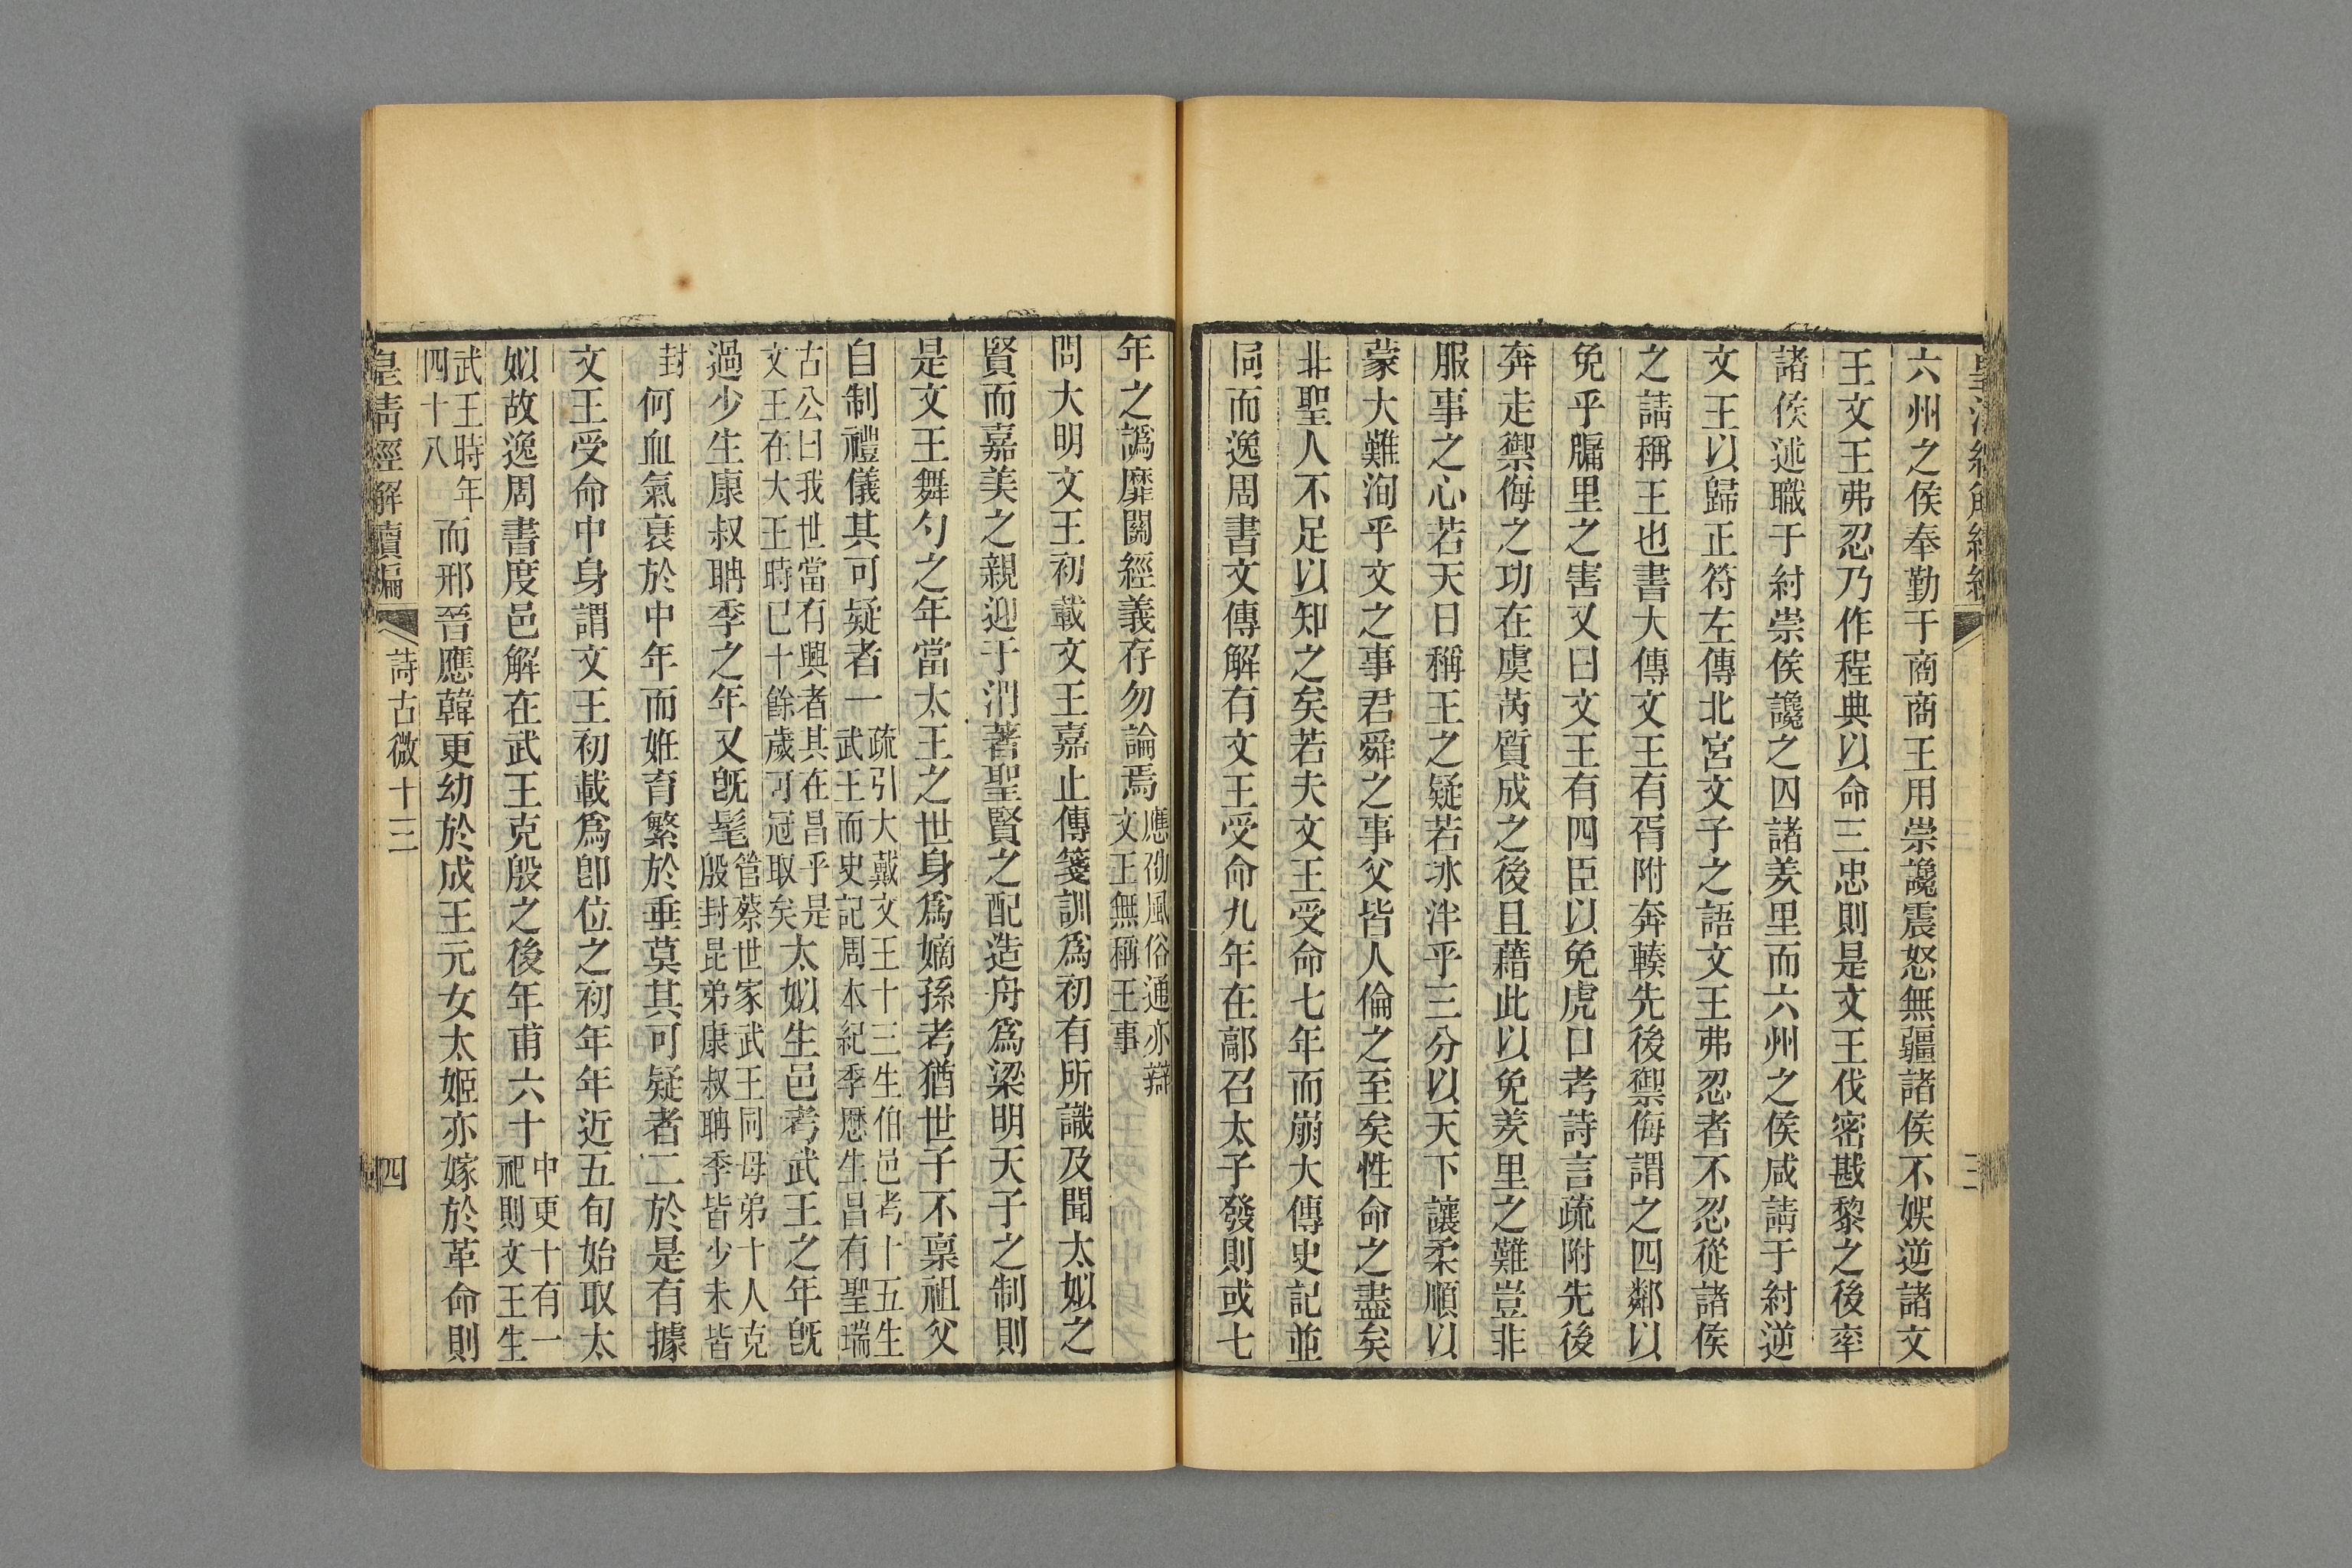 六州之侯奉勤于商商王用崇讒震怒無疆諸侯不娛逆諸文
王文王弗忍乃作程典以命三忠則是文王伐密戡黎之後率
諸侯述職于紂崇侯讒之囚諸羑里而六州之侯咸請于紂逆
文王以歸正符左傳北宮文子之語文王弗忍者不忍從諸侯
之請稱王也書大傳文王有胥附奔輳先後禦侮謂之四鄰以
免乎牖里之害又曰文王有四臣以免虎口考詩言疏附先後
奔走禦侮之功在虞芮質成之後且藉此以免羑里之難豈非
服事之心若天日稱王之疑若冰泮乎三分以天下讓柔順以
蒙大難洵乎文之事君舜之事父皆人倫之至矣性命之盡矣
非聖人不足以知之矣若夫文王受命七年而崩大傳史記並
同而逸周書文傳解有文王受命九年在鄗召太子發則或七
年之譌靡關經義存勿論焉應劭風俗通亦辯文王無稱王事
問大明文王初載文王嘉止傳箋訓爲初有所識及聞太姒之
賢而嘉美之親迎于渭著聖賢之配造舟爲梁明天子之制則
是文王舞勺之年當太王之世身爲嫡孫考猶世子不稟祖父
自制禮儀其可疑者一疏引大戴文王十三生伯邑考十五生武王而史記周本紀季歷生昌有聖瑞
古公曰我世當有興者其在昌乎是文王在大王時已十餘歲可冠取矣太姒生邑考武王之年旣
過少生康叔聃季之年又旣髦管蔡世家武王同母弟十人克殷封昆弟康叔聃季皆少未皆
封何血氣衰於中年而姙育繁於垂莫其可疑者二於是有據
文王受命中身謂文王初載爲卽位之初年年近五旬始取太
姒故逸周書度邑解在武王克殷之後年甫六十中更十有一祀則文王生
武王時年四十八而邢晉應韓更幼於成王元女太姬亦嫁於革命則
皇清經解續編
詩古微十三
四